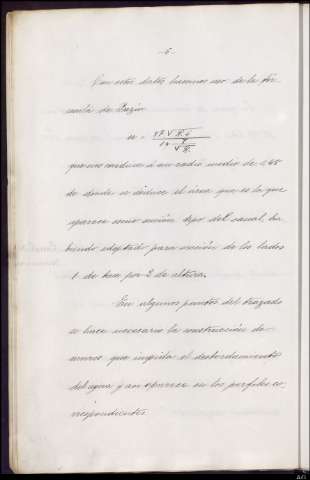 -6-
Con estos datos hacemos uso de la fór-
mula de Bazin
u = 87 √R i / 1+ γ/√R
que nos conduce á un radio medio de 0,65
de donde se deduce el area que es la que
aparece como sección tipo del canal, ha-
biendo adoptado para inclinación de los lados
1 de base por 2 de altura.
En algunos puntos del trazado
se hace necesaria la construcción de
muros que impida el desbordamiento
del agua y an aparece en los perfiles co-
rrespondientes